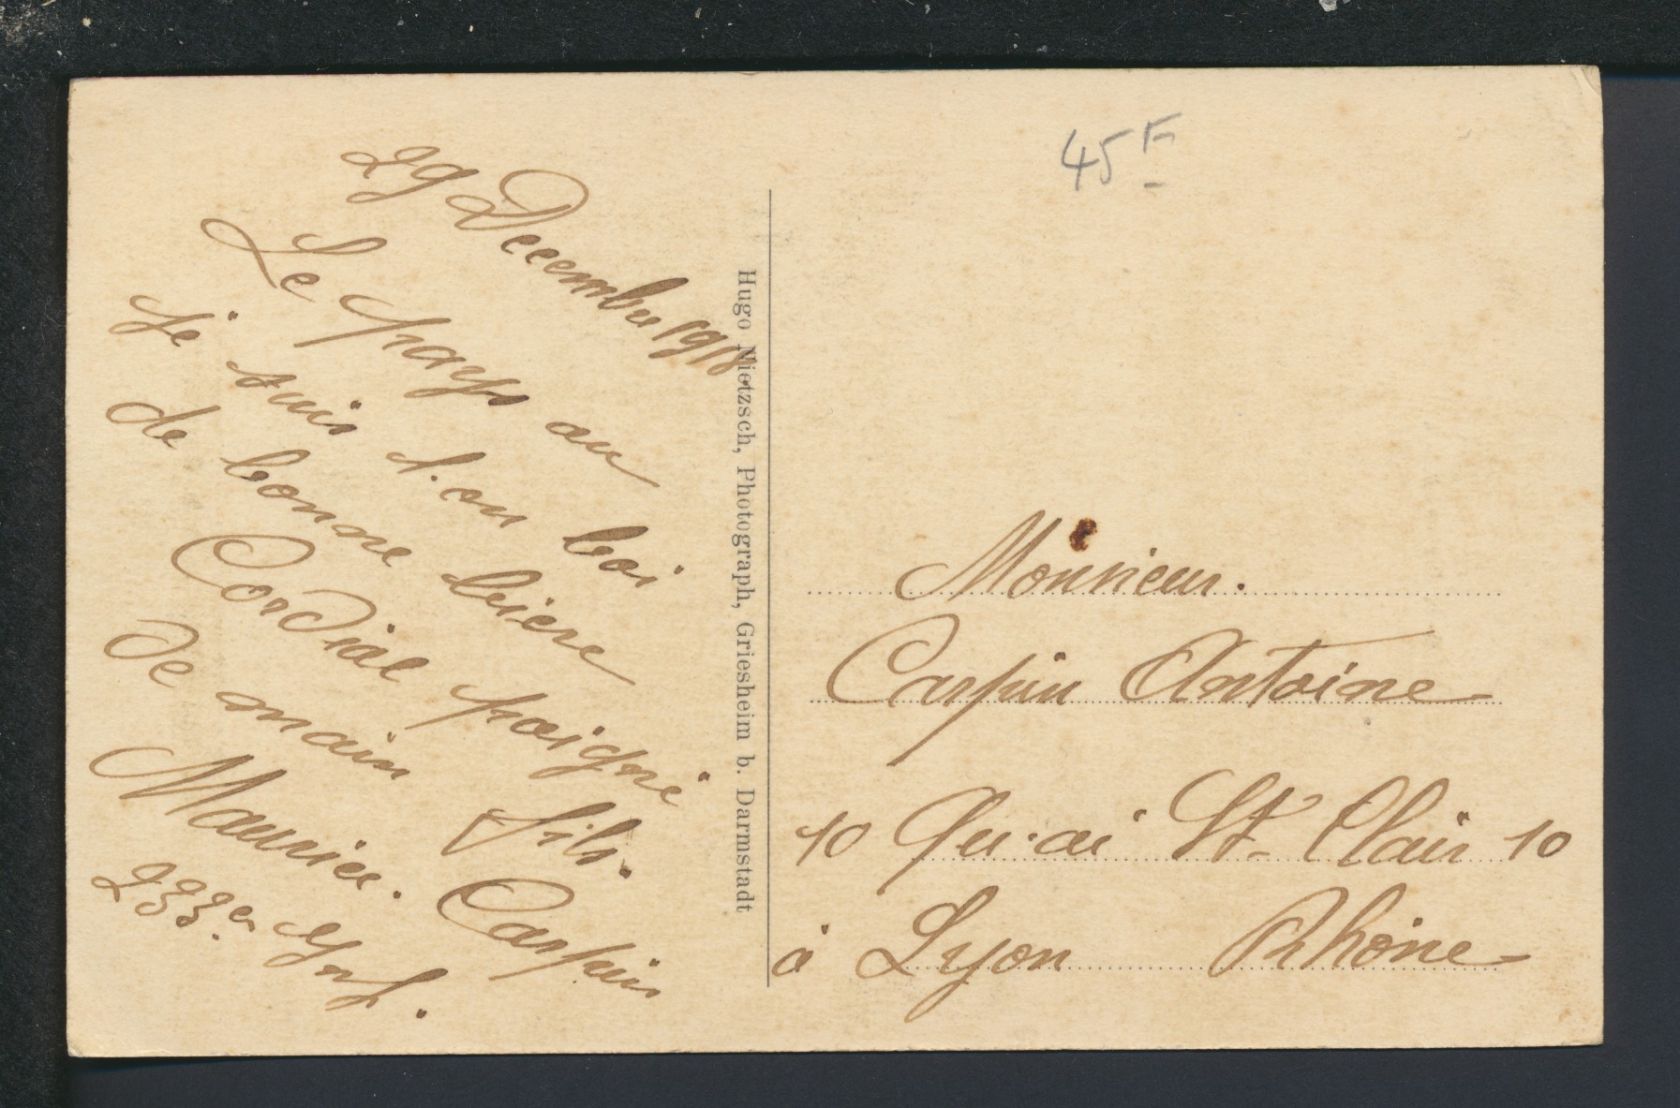 29 Decembre 1918.
Le pays au
je suis l'on boi
de bonne bière
Cordial poigné
de main fils.
Maurice. Carpin
233e Inf.
Hugo Nietzsch, Photograph, Griesheim b. Darmstadt
45F
Monsieur.
Carpin Antoine
10 Quai St. Clair 10
à Lyon Rhône